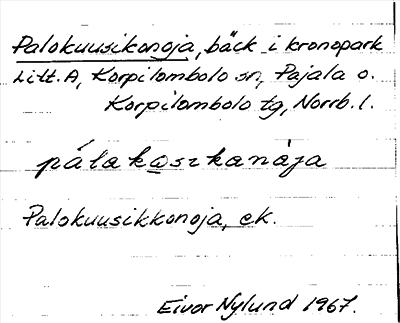 Palokuusikonoja, bäck i kronopark
Litt. A, Korpilombolo sn, Pajala o.
Korpilombolo tg, Norrb. l.
Palokuusikkonoja, ek.
Eivor Nylund 1967.